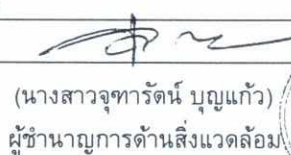 (นางสาวจุฑารัตน์ บุญแก้ว)
ผู้ชำนาญการด้านสิ่งแวดล้อม